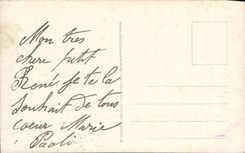 Mon tres
chere petit
René Je te la
souhait de tous
coeur Marie
Paoli